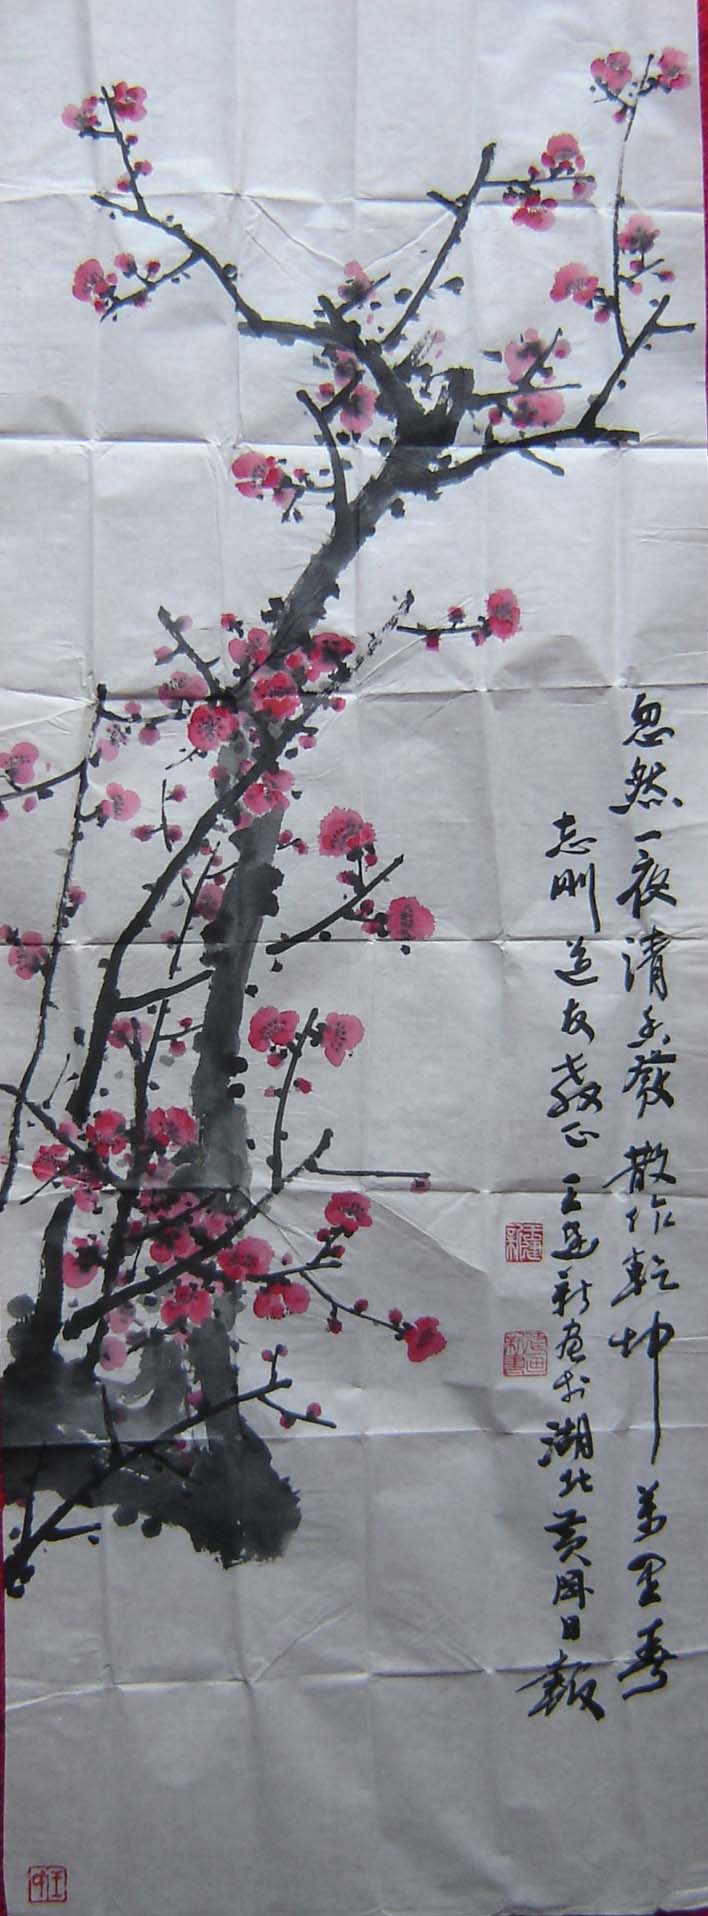 忽然一夜清香發散作乾坤萬里春
志刚道友教正王建新画於湖北黄冈日報